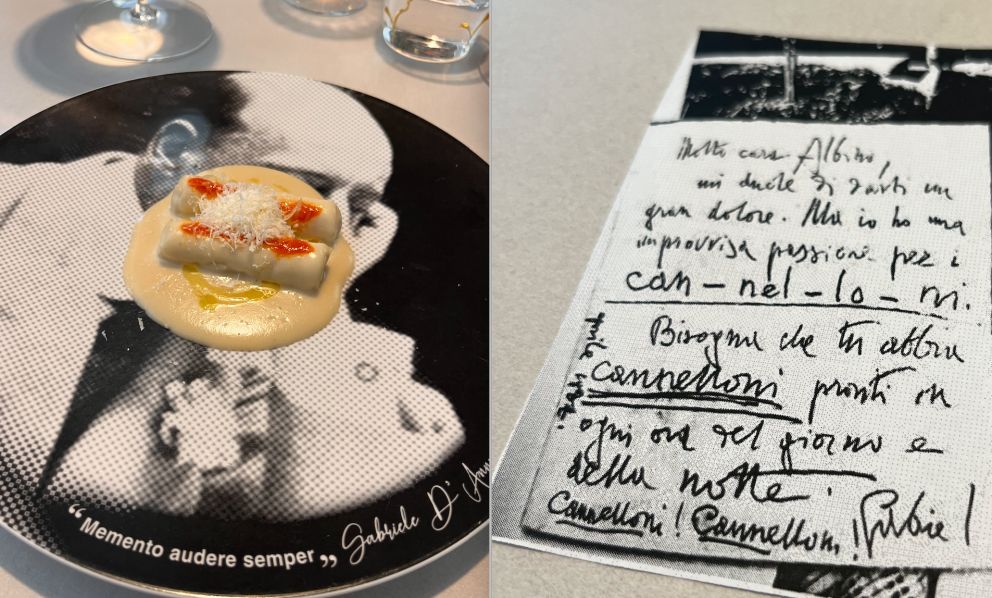 “Memento audere semper„
Gabriele D'Ann
Molto cara Albina,
mi duole di darti un
gran dolore. Ma io ho una
improvvisa passione per i
can-nel-lo-ni.
Bisogna che tu abbia
cannelloni pronti in
ogni ora del giorno e
della notte.
Cannelloni! Cannelloni!